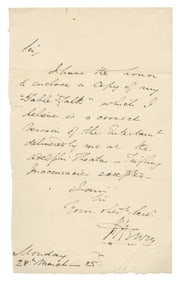 Sir,
I have the honor
to enclose a Copy of my
"Table Talk" which I
believe is a correct
version of the Entertainmt
delivered by me at the
Adelphi Theatre - trifling
inaccuracies excepted -
I am
Sir
Your obedt. Servt.
Monday
28th March - 25